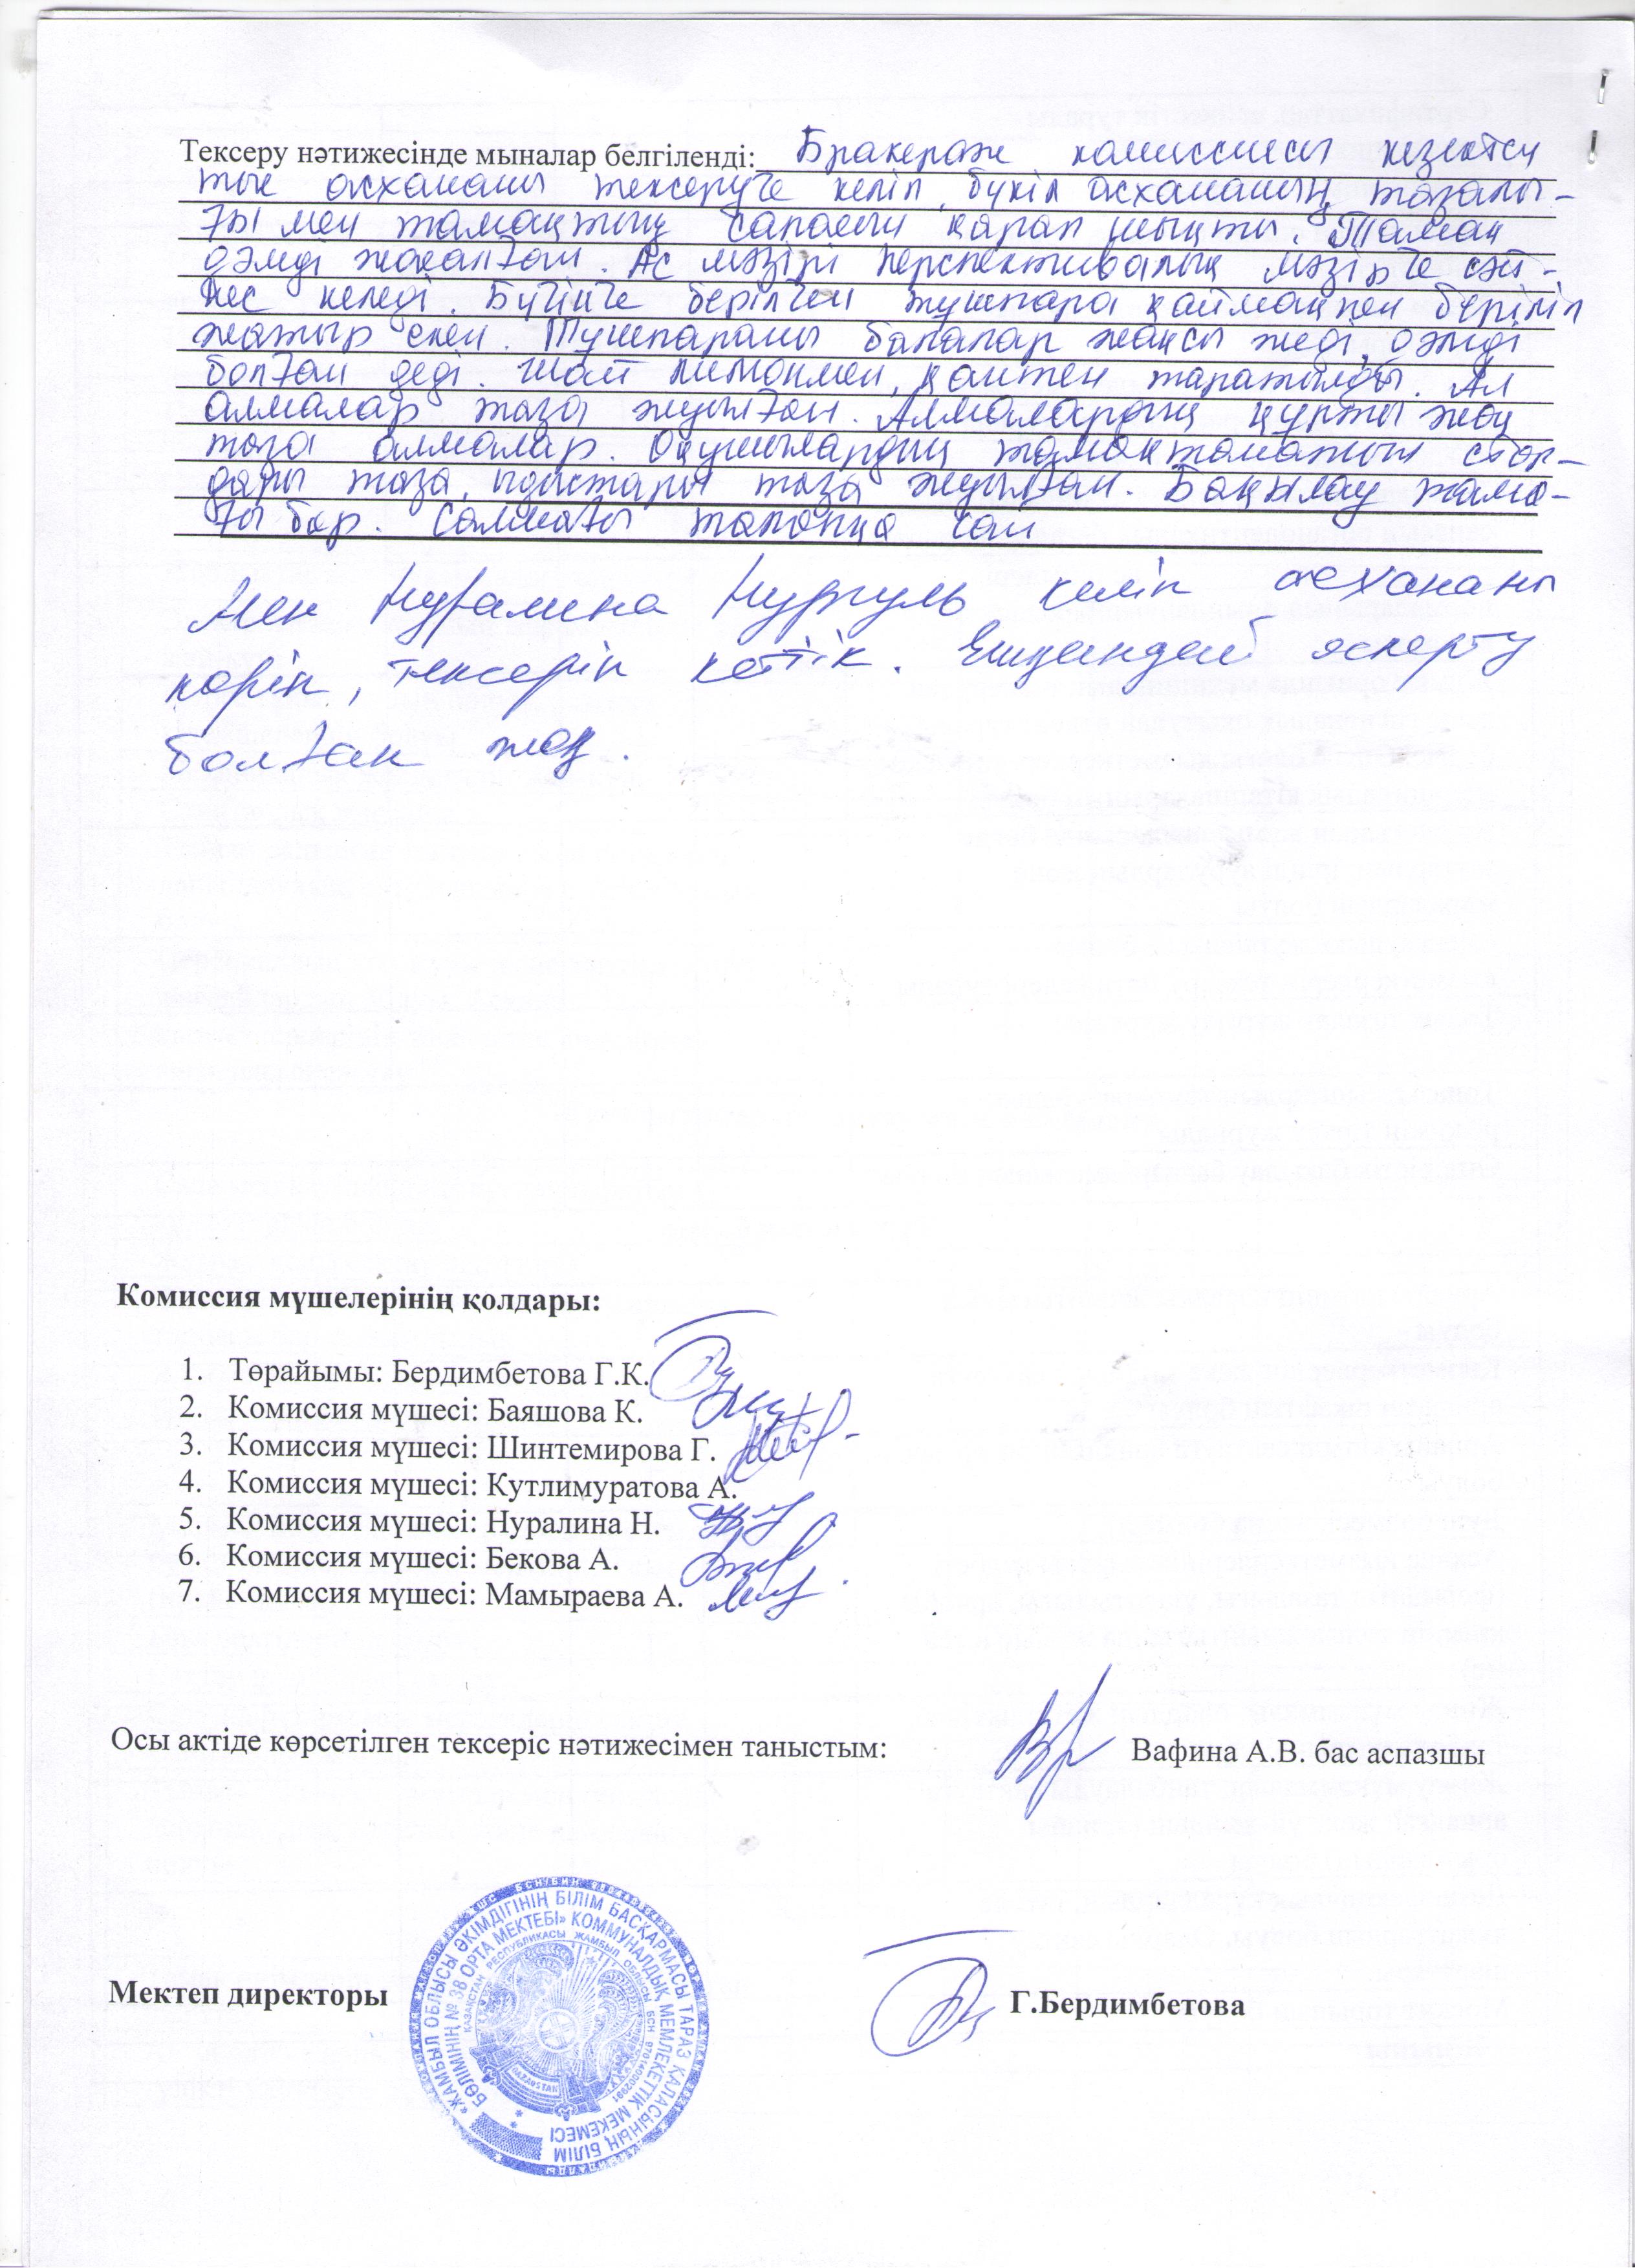 Тексеру нәтижесінде мыналар белгіленді: Бракераж комиссиясы кезектен
тыс асхананы тексеруге келіп, бүкіл асхананың тазалы-
ғы мен тамақтың сапасын қарап шықты. Тамақ
дәмді жасалған. Ас мәзірі перспективалық мәзірге сәй-
кес келеді. Бүгінге берілген тушпара қаймақпен беріліп
жатыр екен. Тушпараны балалар жақсы жеді, дәмді
болған деді. Шай лимонмен, қантпен таратылды. Ал
алмалар таза жуылған. Алмалардың құрты жоқ
таза алмалар. Оқушылардың тамақтанатын стол-
дары таза, ыдыстары таза жуылған. Бақылау тама-
ғы бар. Салмағы талапқа сай
Мен Нуралина Нургуль келіп асхананы
көріп, тексеріп кеттік. Ешқандай ескерту
болған жоқ.
Комиссия мүшелерінің қолдары:
1. Төрайымы: Бердимбетова Г.К.
2. Комиссия мүшесі: Баяшова К.
3. Комиссия мүшесі: Шинтемирова Г.
4. Комиссия мүшесі: Кутлимуратова А.
5. Комиссия мүшесі: Нуралина Н.
6. Комиссия мүшесі: Бекова А.
7. Комиссия мүшесі: Мамыраева А.
Осы актіде көрсетілген тексеріс нәтижесімен таныстым: Вафина А.В. бас аспазшы
Мектеп директоры Г.Бердимбетова
«ЖАМБЫЛ ОБЛЫСЫ ӘКІМДІГІНІҢ БІЛІМ БАСҚАРМАСЫ ТАРАЗ ҚАЛАСЫНЫҢ БІЛІМ
БӨЛІМІНІҢ № 38 ОРТА МЕКТЕБІ» КОММУНАЛДЫҚ МЕМЛЕКЕТТІК МЕКЕМЕСІ
ҚАЗАҚСТАН РЕСПУБЛИКАСЫ ЖАМБЫЛ ОБЛЫСЫ БСН
QAZAQSTAN